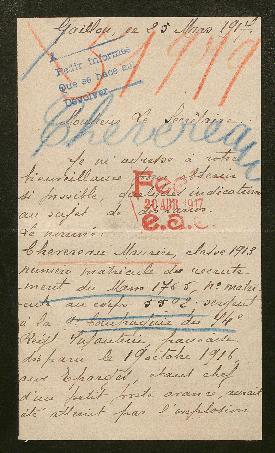 Gaillon, ce 25 Mars 1917
1919
A
Pedir informes
que se hace au
Devolver
Monsieur Le Secrétaire
Chevereau
Je m'adresse à votre
bienveillance pour obtenir
si possible, quelques indications
au sujet de
Le nommé:
Rec
20 ABR 1917
e.a.
Chevereau Maurice, classe 1913
numéro matricule du recrute-
ment du Mans 1765, no matri-
cule au corps 5592, sergent
à la Compagnie du
Reg. Infanterie,
disparu le 19 octobre 1916
aux Eparges, étant chef
d'un petit poste avancé, aurait
été atteint par l'explosion